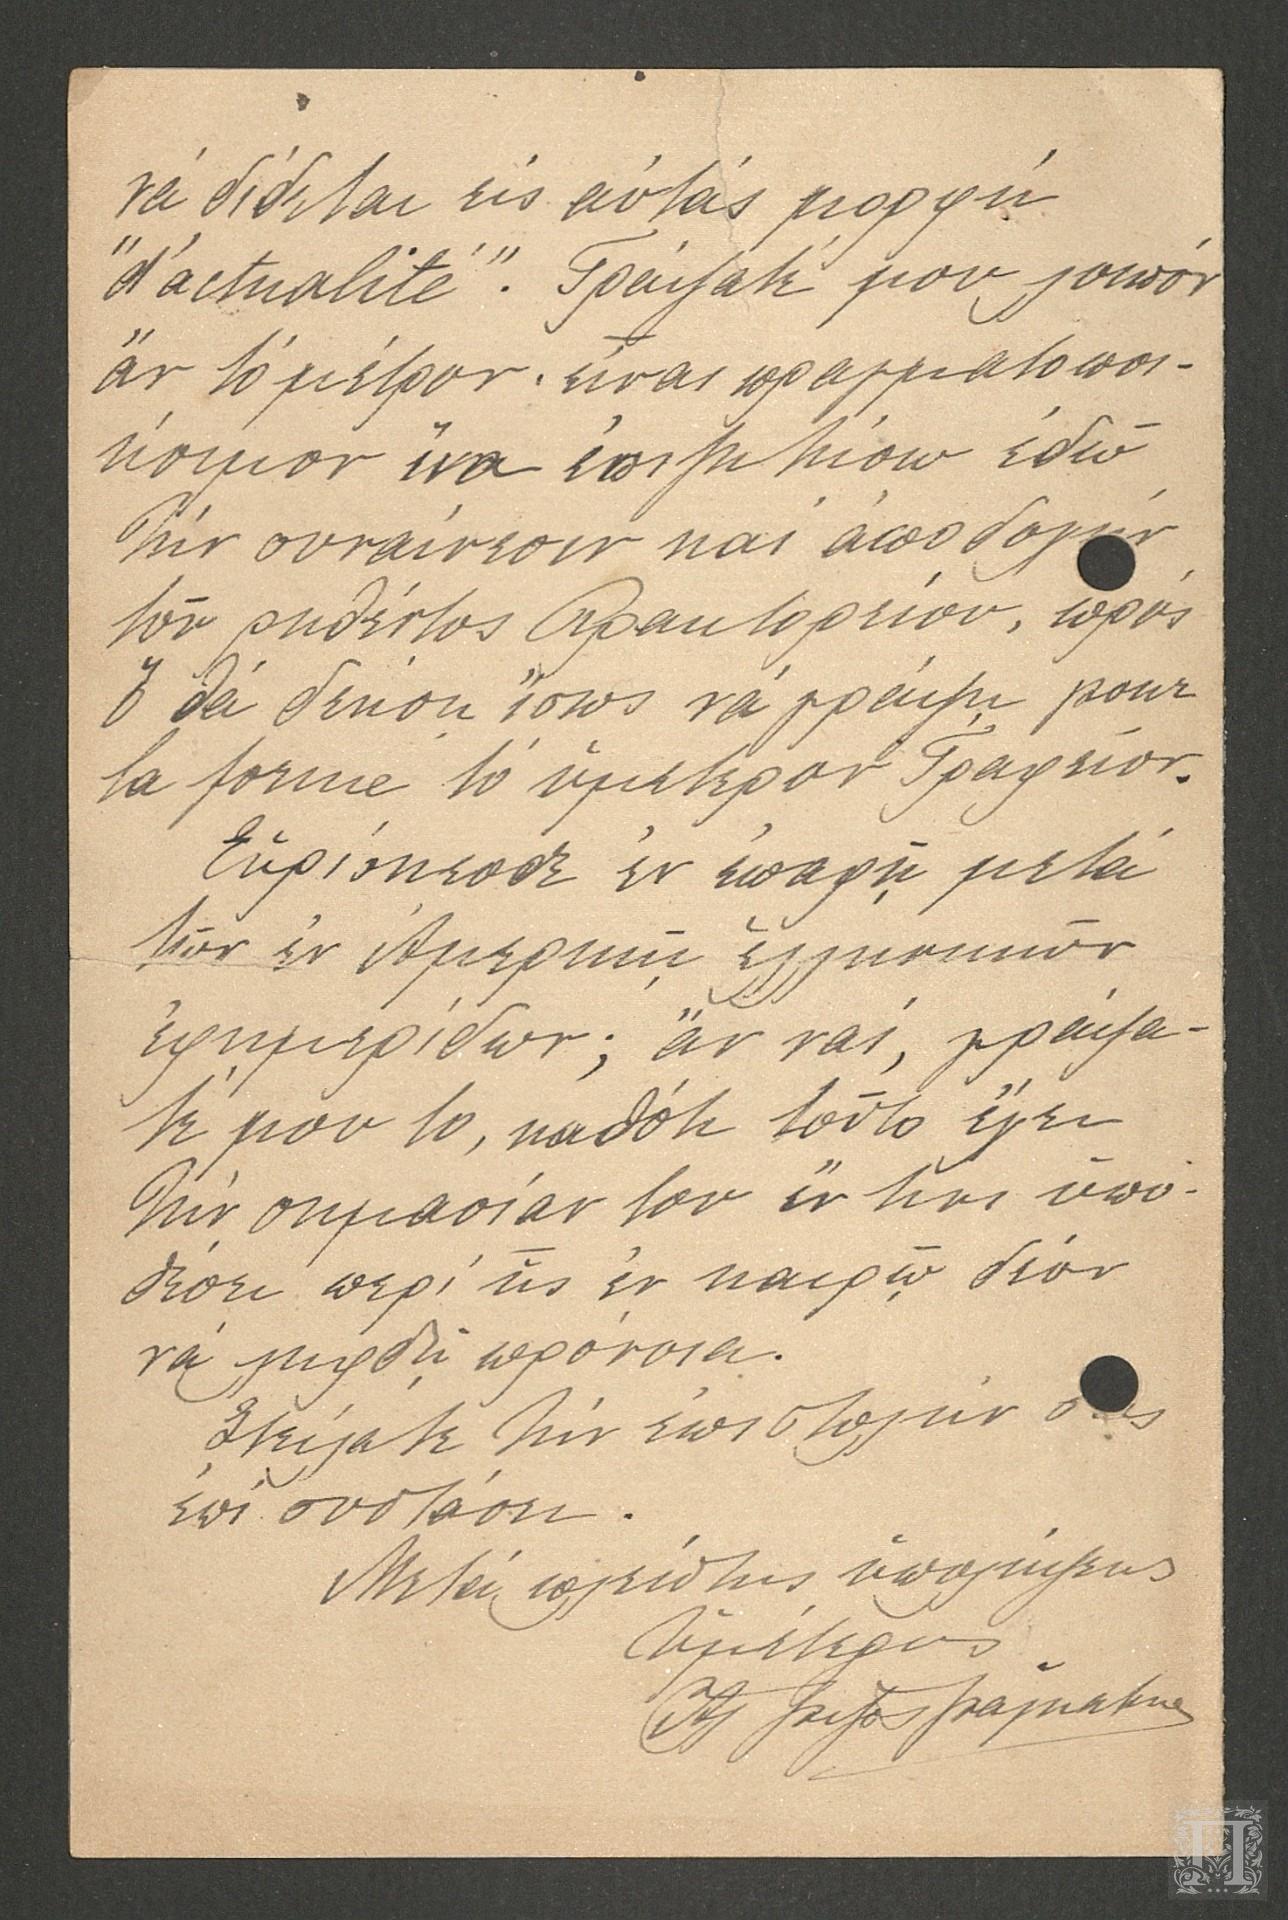 νά δίδεται εἰς αὐτάς μορφή
"d'actualité". Γράψατέ μου λοιπόν
ἄν τό μέτρον εἶναι πραγματοποι-
ήσιμον ἵνα ἐπιζητήσω ἐδῶ
τήν συναίνεσιν καί ἀποδοχήν
τοῦ ῥηθέντος Πρακτορείου, πρός
ὅ θά δεήσῃ ἴσως νά γράψῃ pour
la forme τό ὑμέτερον Γραφεῖον.
Εὑρίσκεσθε ἐν ἐπαφῇ μετά
τῶν ἐν Ἀμερικῇ ἑλληνικῶν
ἐφημερίδων; ἄν ναί, γράψα-
τέ μου το, καθότι τοῦτο ἔχει
τήν σημασίαν του ἔν τινι ὑπο-
θέσει περί ἧς ἐν καιρῷ δέον
νά ληφθῇ πρόνοια.
Στείλατε τήν ἐπιστολήν σας
ἐπί συστάσει.
Μετά πλείστης ὑπολήψεως
Ὑμέτερος